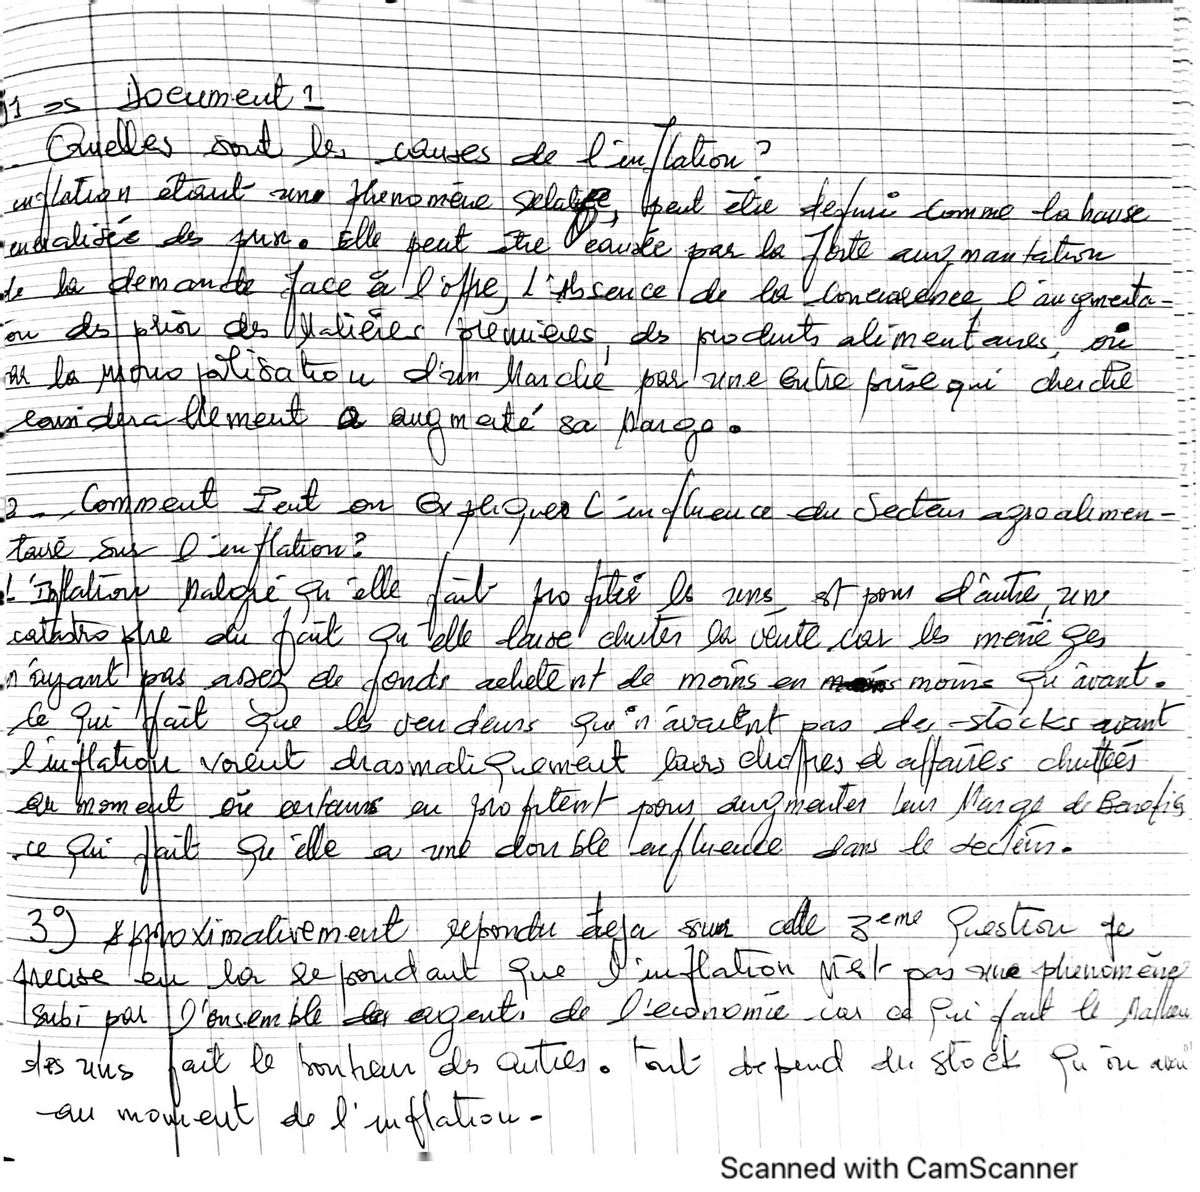 1 => Document 1
Quelles sont les causes de l'inflation?
inflation étant une phenomène relative, peut être definie comme la hausse
eneralisée des prix. Elle peut être causée par la forte augmantation
de la demande face à l'offre, L'Absence de la concurence, l'augmenta-
on des prix des Matières premières, des produits alimentaires, ou
par la monopolisation d'un Marché par une entreprise qui cherche
considerablement a augmenté sa Marge.
2 - Comment Peut on expliquer L'influence du Secteur agroalimen-
taire sur l'inflation?
L'Inflation Malgré qu'elle fait profité les uns est pour d'autre, une
catastrophe du fait qu'elle cause chuter la vente car les menages
n'ayant pas assez de fonds achètent de moins en moins qu'avant.
Ce qui fait que les vendeurs qui n'avaient pas de stocks avant
l'inflation voient drasmatiquement leurs chiffres d'affaires chuttés
au moment où certains en profitent pour augmenter leur Marge de Benefis
ce qui fait qu'elle a une double influence dans le secteur.
3°) Approximativement repondu deja sur cette 3eme question je
precise en la repondant que l'inflation n'est pas une phenomène
subi par l'ensemble des agents de l'economie car ce qui fait le Malheu
des uns fait le bonheur des autres. Tout depend du stock qu'on avai
au moment de l'inflation.
Scanned with CamScanner